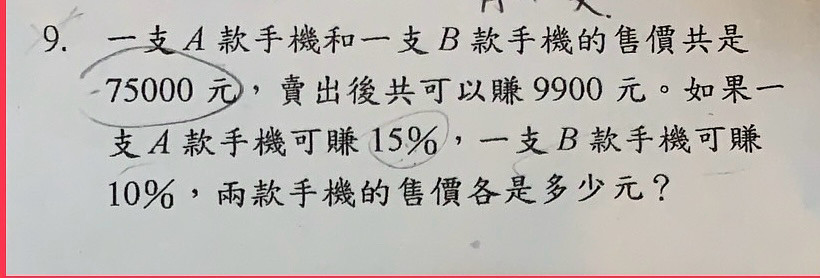 9. 一支 A 款手機和一支 B 款手機的售價共是
75000 元，賣出後共可以賺 9900 元。如果一
支 A 款手機可賺 15%，一支 B 款手機可賺
10%，兩款手機的售價各是多少元？